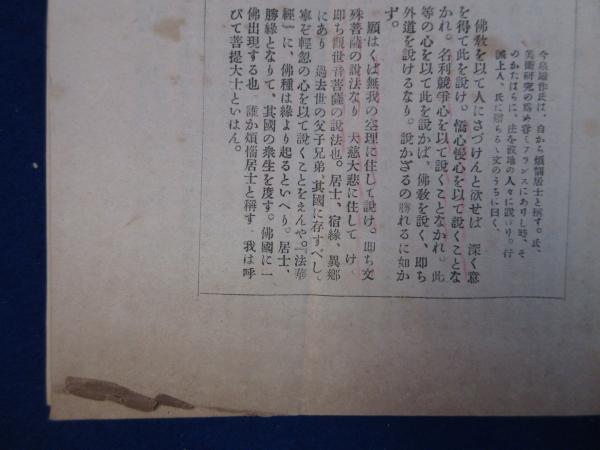 今泉雄作氏は、自から煩惱居士と稱す。氏、
美術研究の爲め巷くフランスにありし時、そ
のかたはらに、法を彼地の人々に説けり。行
誡上人、氏に贈らるゝ文のうちに曰く、
佛敎を以て人にさづけんと欲せば 深く意
を得て此を説け。憍心慢心を以て説くことな
かれ。名利競爭心を以て説くことなかれ。此
等の心を以て此を説かば、佛敎を説く、即ち
外道を説けるなり。説かざるの勝れるに如か
ず。
願はくば無我の空理に住して説け。即ち文
殊菩薩の説法なり 大慈大悲に住して け。
即ち觀世音菩薩の説法也。居士、宿緣、異鄕
にあり 過去世の父子兄弟、其國に存すべし。
寧ぞ輕忽の心を以て説くことをえんや。『法華
經』に、佛種は緣より起るといへり。居士、
勝緣となりて、其國の衆生を度す。佛國に一
佛出現する也。誰か煩惱居士と稱す 我は呼
びて菩提大士といはん。